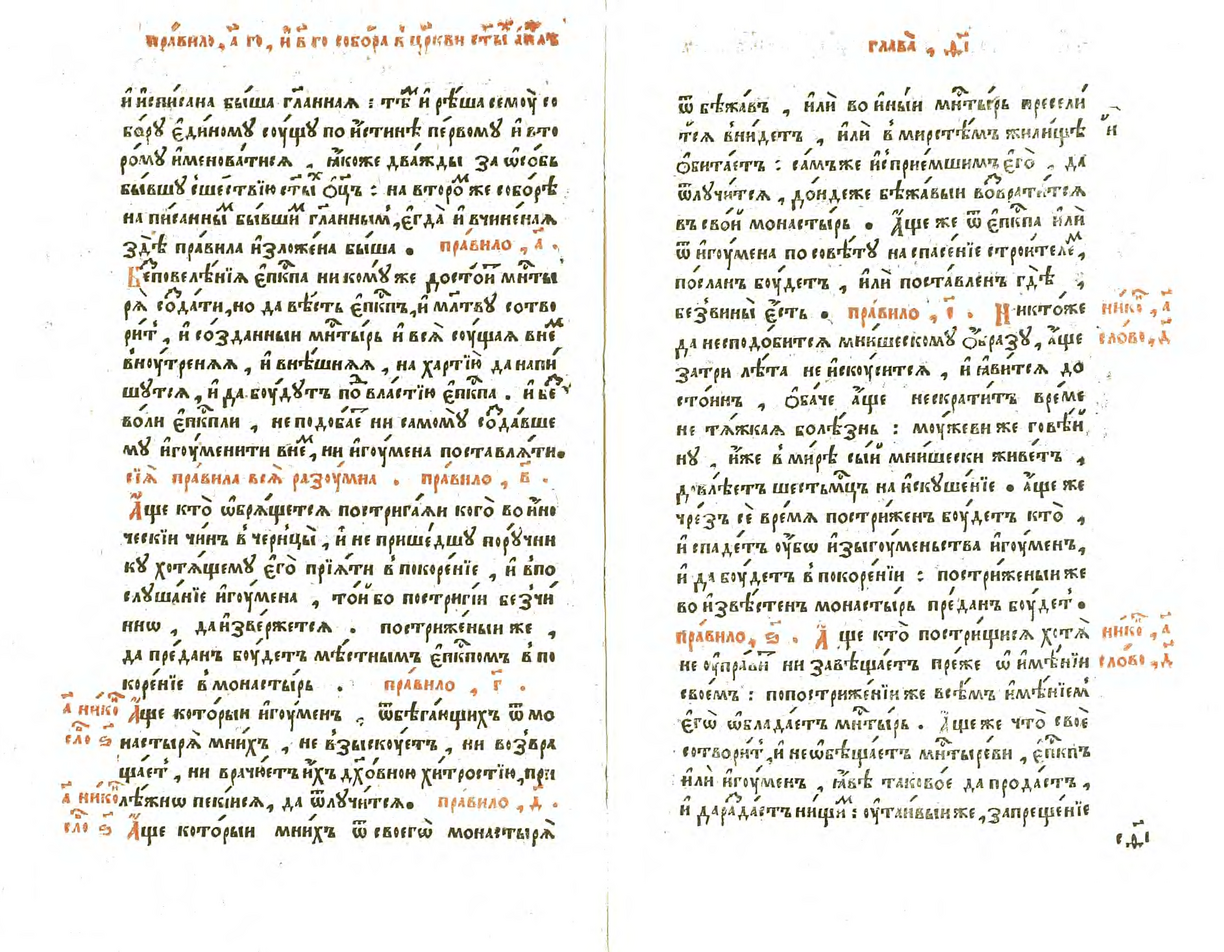 пра́вило, а҃ го, и҆ в҃ го собо́ра в̾ цр҃кви ст҃ы́ апⷭ҇лъ
и҆ и҆спи́сана бы́ша гл҃анная : тѣⷨ и҆ рѣ́ша семоу̀ со
бо́рꙋ є҆ди́номꙋ соу́щꙋ по и҆́стинѣ пе́рвомꙋ и҆ вто
ро́мꙋ и҆менова́тися , ꙗ҆́коже два́жды за ѡ҆со́бь
бы́вшꙋ сше́ствїю ст҃ыⷯ ѻ҆ц҃ъ : на второ́ⷨ же собо́рѣ
на пи́санныⷨ бы́вшиⷨ гл҃аннымъ, є҆гда̀ и҆ вчине́ная
здѣ̀ пра́вила и҆зложе́на бы́ша . пра́вило , а҃ .
Беⷥповелѣ́нїя є҆пⷭ҇кпа ни комꙋ́ же досто́ит мнⷭ҇ты
ря̀ соⷥда́ти, но да вѣ́сть є҆пⷭ҇кпъ, и҆ мл҃твꙋ сотво
ри́т , и҆ со́зданныи мнⷭ҇ты́рь и҆ вся̀ соу́щая вне́ⷨ
вноу́треняя , и҆ внѣ́шняя , на ха́ртїю да напи́
шꙋтся , и҆ да бо́удꙋтъ поⷣ вла́стїю є҆пⷭ҇кпа . и҆ беⷥ
во́ли є҆пⷭ҇кпли , не подоба́є ни самомꙋ̀ соⷥда́вше
мꙋ и҆гоу́менити вне́ⷨ, ни и҆гоу́мена поставля́ти.
сїѧ̀ пра́вила всѧ̀ разоу́мна . пра́вило , в҃ .
А҆́ще кто̀ ѡ҆бря́щется пострига́яи кого̀ во и҆но́
ческїи чи́нъ в̾ черницы̀ , и҆ не прише́дшꙋ порꙋ́чни
кꙋ хотя́щемꙋ є҆го̀ прїя́ти в̾ покоре́нїе , и҆ в̾по
слꙋша́нїе и҆гоу́мена , то́и бо постриги́и безчи́
ннѡ , да и҆зве́ржется . постриже́ныи же ,
да пре́данъ бо́удетъ мѣ́стнымъ є҆пⷭ҇кпомъ в̾ по
коре́нїе в̾ монасты́рь . пра́вило , г҃ .
а҃ нико́ⷩ А҆́ще кото́рыи и҆гоу́менъ , ѿбѣга́ющихъ ѿ мо
сло́ ѕ҃ настыря̀ мни́хъ , не в̾зы́скоуетъ , ни возвра
ща́ет , ни врачю́етъ и҆́хъ дх҃о́вною хи́тростїю, при
а҃ нико́ⷩ лѣ́жнѡ пекі́ися, да ѿлꙋчи́тся. пра́вило , д҃ .
сло́ ѕ҃ А҆́ще кото́рыи мни́хъ ѿ своегѡ̀ монастыря̀
глава̀ , д҃і
ѿ бѣжа́въ , и҆лѝ во и҆ны́и мнⷭ҇ты́рь пресели́
тся в̾ни́детъ , и҆лѝ в̾ мирстѣ́мъ жили́щѣ
ѻ҆бита́етъ : са́мъже и҆ сприе́мшимъ є҆го̀ , да
ѿлꙋчи́тся , до́ндеже бѣжа́выи воⷥврати́тся
въ сво́и монасты́рь . А҆́ще же ѿ є҆пⷭ҇кпа и҆лѝ
ѿ и҆гоу́мена по совѣ́тꙋ на спасе́нїе строи́телеⷨ,
по́сланъ бо́удетъ , и҆лѝ поста́вленъ гдѣ̀ ,
безвины̀ є҆́сть . пра́вило , є҃ . Никто́же
нико́ⷩ , а҃
да не сподо́битса мни́шескомꙋ ѻ҆́бразꙋ, а҆́ще
сло́во, д҃
затри лѣ́та не и҆скоу́сится , и҆ ꙗ҆ви́тся до
сто́инъ , ѻ҆ба́че а҆́ще не скрати́тъ вре́ме
не тя́жкая болѣ́знь : моу́жеви же говѣ́и
нꙋ , и҆́же в̾ ми́рѣ сы́и мни́шески живе́тъ ,
довлѣ́етъ ше́стьмц҃ъ на и҆скꙋше́нїе . а҆́ще же
чре́зъ сѐ вре́мя постри́женъ бо́удетъ кто̀ ,
и҆ спаде́тъ оу҆́бѡ и҆зыгоу́меньства и҆гоу́менъ,
и҆ да бо́удетъ в̾ покоре́нїи : постриже́ныи же
во и҆звѣ́стенъ монасты́рь пре́данъ бо́удет .
пра́вило, ѕ҃ . А҆́ще кто̀ постри́щися хотя̀
нико́ⷩ , а҃
не оу҆пра́вит ни завѣща́етъ пре́же ѡ҆ и҆мѣ́нїи
сло́во , д҃
свое́мъ : попостриже́нїи же всѣ́мъ и҆мѣ́нїем
є҆гѡ̀ ѡ҆блада́етъ мнⷭ҇ты́рь . А҆́ще же что̀ своѐ
сотвори́т, и҆ не ѡ҆бѣща́етъ мнⷭ҇тыреви , є҆пⷭ҇кпъ
и҆лѝ и҆гоу́менъ , ꙗ҆́вѣ таково́е да прода́етъ ,
и҆ даⷥрⷣа́етъ ни́щиⷨ : оу҆таи́выи же, запреще́нїе
с д҃і